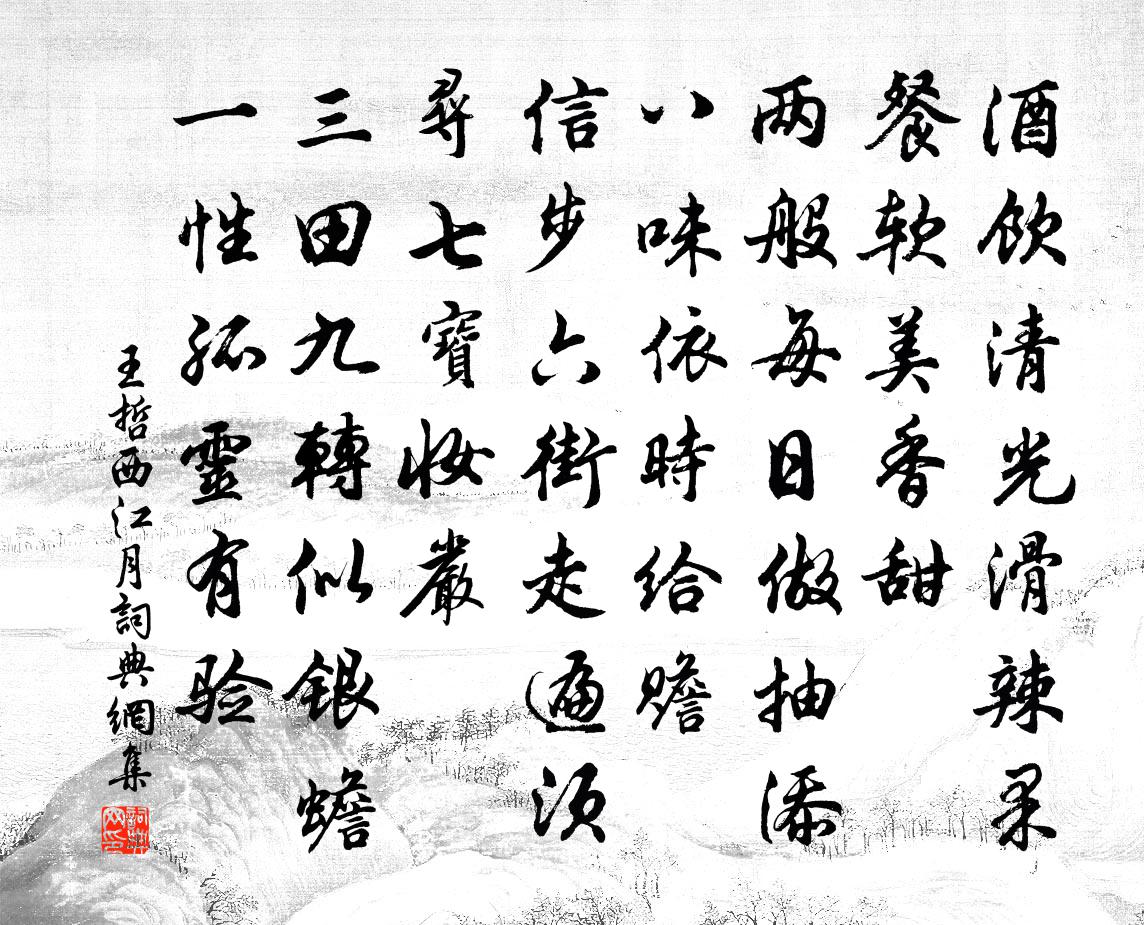 酒飲清光滑辣柔
餐软美香甜
两般每日做抽添
八味依時给贍
信步六街走遍须
尋七寶妝嚴
三田九轉似銀蟾
一性孤靈有验
王哲西江月詞典網集